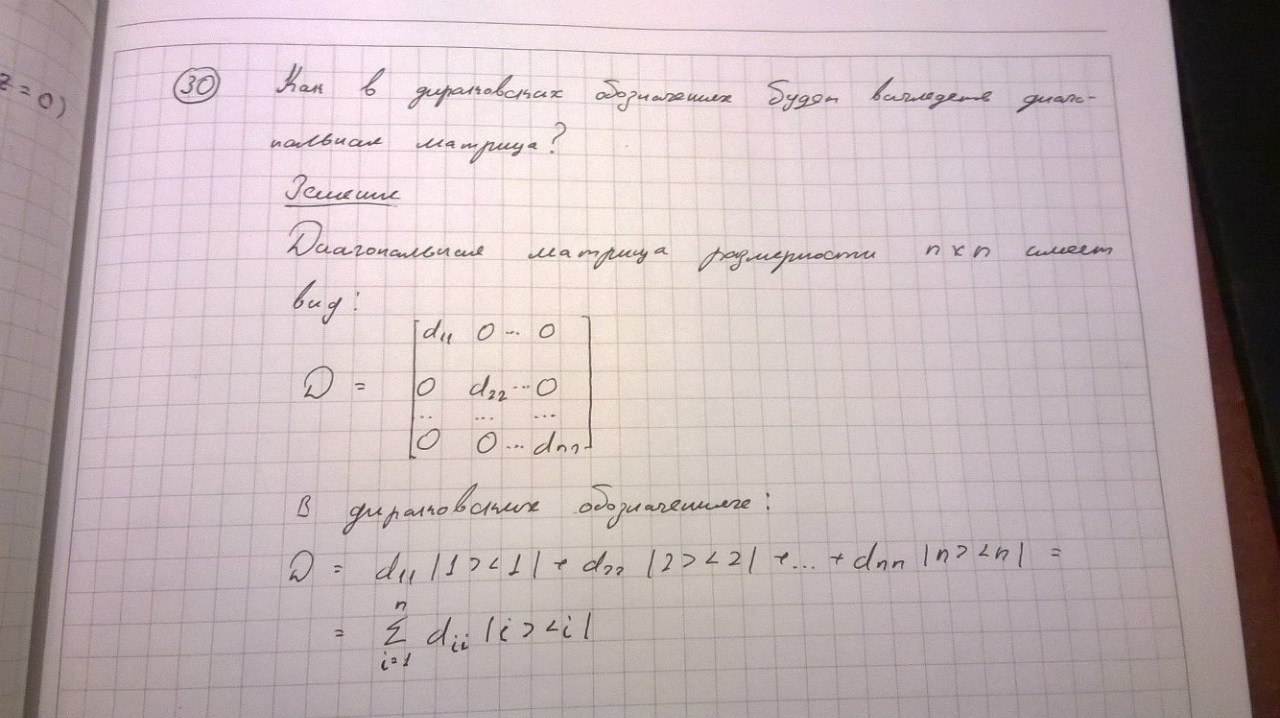 z = 0)
30 Как в дираковских обозначениях будет выглядеть диаго-
нальная матрица?
Решение
Диагональная матрица размерности n x n имеет
вид:
D = [ d₁₁ 0 ... 0
0 d₂₂ ... 0
... ... ...
0 0 ... dₙₙ ]
В дираковских обозначениях:
D = d₁₁ |1><1| + d₂₂ |2><2| + ... + dₙₙ |n><n| =
= ∑ᵢ₌₁ⁿ dᵢᵢ |i><i|